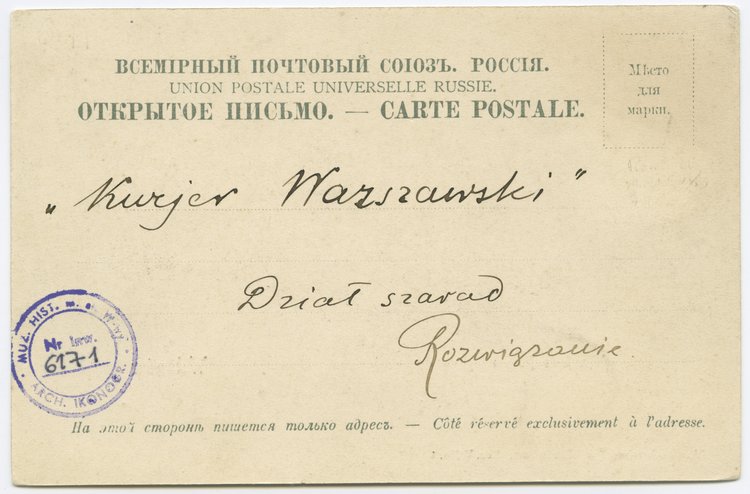 ВСЕМІРНЫЙ ПОЧТОВЫЙ СОЮЗЪ. РОССІЯ.
UNION POSTALE UNIVERSELLE RUSSIE.
ОТКРЫТОЕ ПИСЬМО. — CARTE POSTALE.
Мѣсто
для
марки.
„Kurjer Warszawski"
Dział szarad
Rozwiązanie
MUZ. HIST. m. st. W-wy
Nr Inw.
617-1
ARCH. IKONOGR.
На этой сторонѣ пишется только адресъ. — Côté réservé exclusivement à l'adresse.